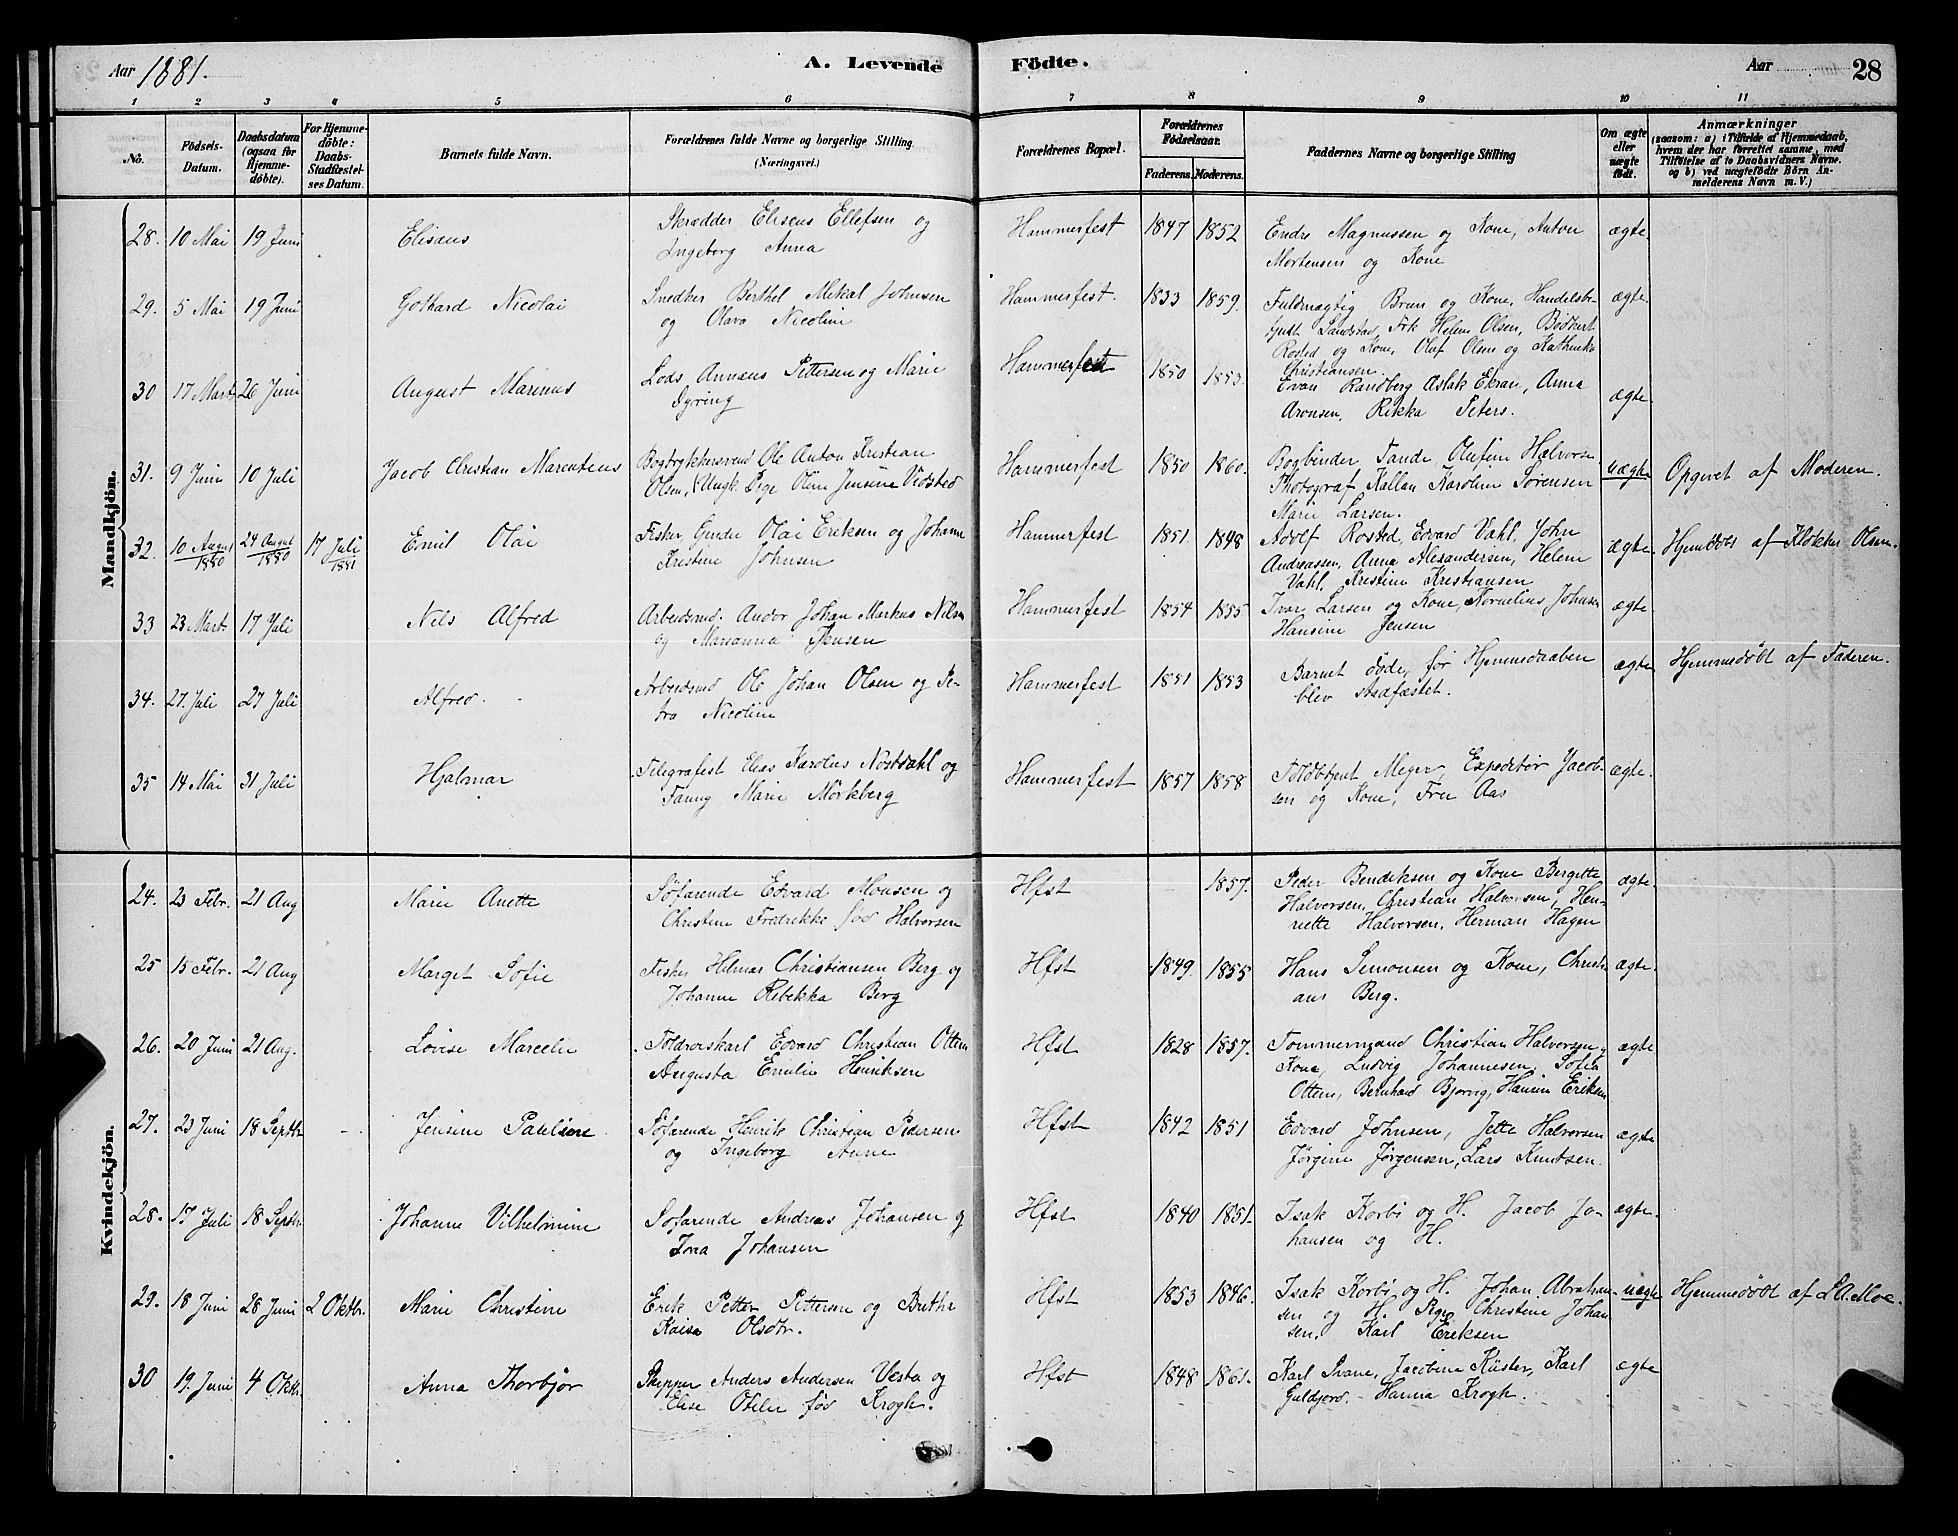 Aar 1881. A. Levende Födte. Aar 28
1 2 3 4 5 6 7 8 9 10 11
No. Födsels-Datum. Daabsdatum (ogsaa for Hjemmedöbte). For Hjemmedöbte: Daabs-Stadfæstelses Datum. Barnets fulde Navn. Forældrenes fulde Navne og borgerlige Stilling. (Næringsvei.) Forældrenes Bopæl. Forældrenes Födselsaar. Faderens. Moderens. Faddernes Navne og borgerlige Stilling Om ægte eller uægte födt. Anmærkninger (saasom: a) i Tilfælde af Hjemmedaab, hvem der har forrettet samme, med Tilföielse af to Daabsvidners Navne. og b) ved uægtefödte Börn Anmelderens Navn m. V.)
Mandkjön.
28. 10 Mai 19 Juni Elisæus Skrædder Elisæus Ellefsen og Hammerfest 1847 1852 Endre Magnussen og Kone, Anton ægte.
Ingeborg Anna Mortensen og Kone
29. 5 Mai 19 Juni Gothard Nicolai Snedker Berthel Mikal Johnsen Hammerfest. 1833 1859. Fuldmægtig Brun og Kone, Handelsbe- ægte.
og Olava Nicoline tjent Sandstad, Frk Helene Olsen,
Rosted og Kone, Oluf Olsen og Kathinka
Christiansen.
30 17 Marts 26 Juni August Marinus Lods Annæus Pettersen og Marie Hammerfest 1850 1853. Evan Randberg Aslak Ekran, Anna ægte.
Dyring Aronsen, Rikka Peters.
31. 9 Juni 10 Juli Jacob Christian Marentius Bogtrykkersvend Ole Anton Kristian Hammerfest 1850 1860. Bogbinder Tande, Olufine Halvorsen uægte Opgivet af Moderen.
Olsen, Ungk. Pige Oline Jensine Vidsted Photograf Kallan Karoline Sørensen
Marie Larsen.
32. 10 August 1880 24 August 1880 17 Juli 1881 Emil Olai Fisker Olai Eriksen og Johanna Hammerfest 1851. 1848 Adolf Rosted, Edvard Vahl, John ægte. Hjemdöbt af Klokker Olsen
Kristine Johnsen Andreassen, Anna Alexandersen, Helene
Vahl, Kristine Kristiansen
33 23 Marts 17 Juli Nils Alfred Arbeidsmd. Andor Johan Markus Nilsen Hammerfest 1854 1855 Ivar Larsen og Kone, Kornelius Johnsen ægte
og Marianna Jensen Hansine Jensen
34. 27. Juli 27 Juli Alfred. Arbeidsmd Ole Johan Olsen og Pe- Hammerfest 1851 1853 Barnet döde, för Hjemmedaaben ægte Hjemmedöbt af Faderen.
tra Nicoline blev stadfæstet.
35 14 Mai 31 Juli Hjalmar Telegrafist Elias Karolus Nostdahl og Hammerfest 1857 1858 Toldbtjent Meyer, Expeditör Jacob- ægte.
Fanny Marie Mörkberg sen og Kone, Fru Aas
Kvindekjön.
24. 23 Febr. 21 Aug Marie Anette Söfarende Edvard Monsen og Hfst 1857. Peder Bendiksen og Kone Bergitte ægte.
Christine Fredrikke föd Halvorsen Halvorsen, Christian Halvorsen, Hen-
riette Halvorsen, Herman Hagen
25 15 Febr. 21 Aug Marget Sofie Fisker Hilmar Christiansen Berg og Hfst 1849. 1855 Hans Simonsen og Kone, Christi- ægte.
Johanne Rebekka Berg ans Berg.
26. 20 Juni 21 Aug. Lovise Marcelie Toldroerskarl Edvard Christian Ottem Hfst 1828 1857. Tømmermand Christian Halvorsen og ægte
Augusta Emilie Henriksen Kone, Ludvig Johannesen, Sofie
Ottem, Bernhard Bjørvig, Hanine Eriksen
27. 23 Juni 18 Septbr. Jensine Pauline Söfarende Henrik Christian Pedersen Hfst 1842 1851 Edvard Johnsen, Jette Halvorsen ægte
og Ingeborg Anne Jörgine Jörgensen, Lars Knutsen.
28. 17 Juli 18 Septbr. Johanne Vilhelmine Söfarende Andreas Johansen og Hfst 1840 1851. Isak Korbi og H. Jacob Jo- ægte.
Ina Johansen hansen og H.
29. 18 Juni 28 Juni 2 Oktbr. Marie Christine Erik Petter Pettersen og Brithe Hfst 1853 1846. Isak Korbi og H. Johan Abraham- uægte Hjemmedöbt af L A Moe.
Kaisa Olsdtr. sen og H. Pige Christine Johan
sen, Karl Eriksen
30 19. Juni 4 Oktbr. Anna Thorbjör Skipper Anders Andersen Vesta og Hfst 1848 1861. Karl Svane, Jacobine Küster, Karl ægte
Elise Otelie föd Krogh. Guldjord. Hanna Krogh.